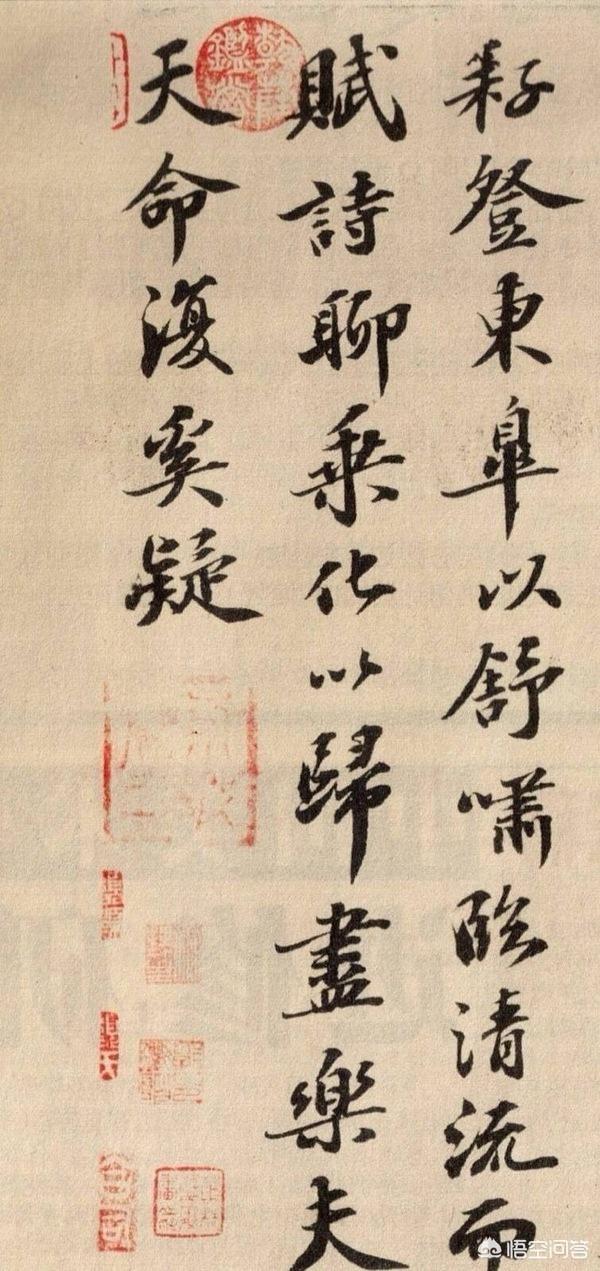 耔登東皐以舒嘯臨清流而
賦詩聊乗化以歸盡樂夫
天命復奚疑
悟空问答